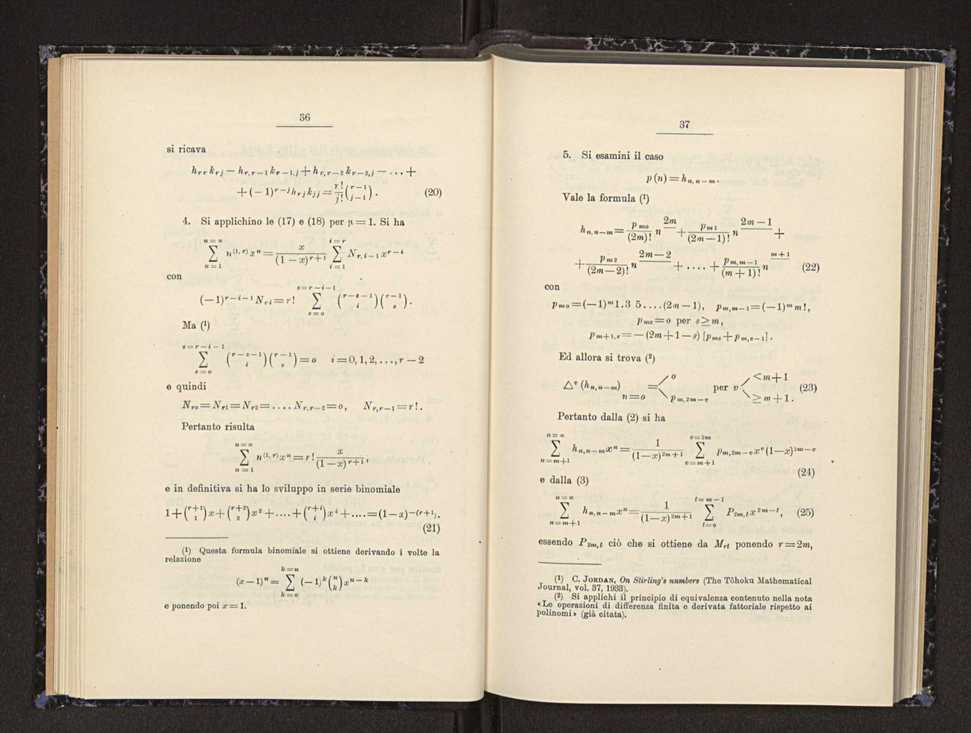 36
si ricava
h_{rr} k_{rj} − h_{r,r−1} k_{r−1,j} + h_{r,r−2} k_{r−2,j} − ... +
+ (−1)^{r−j} h_{rj} k_{jj} = \frac{r!}{j!} \binom{r−1}{j−1} . (20)
4. Si applichino le (17) e (18) per p = 1. Si ha
\sum_{n=1}^{n=∞} n^{(1,r)} x^n = \frac{x}{(1−x)^{r+1}} \sum_{i=1}^{i=r} N_{r,i−1} x^{r−i}
con
(−1)^{r−i−1} N_{ri} = r! \sum_{s=o}^{s=r−i−1} \binom{r−s−1}{i} \binom{r−1}{s} .
Ma (¹)
\sum_{s=o}^{s=r−i−1} \binom{r−s−1}{i} \binom{r−1}{s} = o i = 0, 1, 2, ..., r − 2
e quindi
N_{ro} = N_{r1} = N_{r2} = .... N_{r,r−2} = o, N_{r,r−1} = r! .
Pertanto risulta
\sum_{n=1}^{n=∞} n^{(1,r)} x^n = r! \frac{x}{(1−x)^{r+1}} ,
e in definitiva si ha lo sviluppo in serie binomiale
1 + \binom{r+1}{1} x + \binom{r+2}{2} x² + .... + \binom{r+i}{i} x^i + .... = (1−x)^{−(r+1)} .
(21)
(¹) Questa formula binomiale si ottiene derivando i volte la
relazione
(x−1)^n = \sum_{k=o}^{k=n} (−1)^k \binom{n}{k} x^{n−k}
e ponendo poi x = 1.
37
5. Si esamini il caso
p (n) = h_{n,n−m} .
Vale la formula (¹)
h_{n,n−m} = \frac{p_{mo}}{(2m)!} n^{2m} + \frac{p_{m1}}{(2m−1)!} n^{2m−1} +
+ \frac{p_{m2}}{(2m−2)!} n^{2m−2} + .... + \frac{p_{m,m−1}}{(m+1)!} n^{m+1} (22)
con
p_{mo} = (−1)^m 1.3 5....(2m−1), p_{m,m−1} = (−1)^m m!,
p_{ms} = o per s ≥ m,
p_{m+1,s} = − (2m+1−s) [p_{ms} + p_{m,s−1}] .
Ed allora si trova (²)
△^v (h_{n,n−m})_{n=o} = < o ; p_{m,2m−v} per v < <m+1 ; ≥ m+1 . (23)
Pertanto dalla (2) si ha
\sum_{n=m+1}^{n=∞} h_{n,n−m} x^n = \frac{1}{(1−x)^{2m+1}} \sum_{v=m+1}^{v=2m} p_{m,2m−v} x^v (1−x)^{2m−v}
(24)
e dalla (3)
\sum_{n=m+1}^{n=∞} h_{n,n−m} x^n = \frac{1}{(1−x)^{2m+1}} \sum_{t=o}^{t=m−1} P_{2m,t} x^{2m−t} , (25)
essendo P_{2m,t} ciò che si ottiene da M_{rt} ponendo r = 2m,
(¹) C. JORDAN, On Stirling's numbers (The Tôhoku Mathematical
Journal, vol. 37, 1933).
(²) Si applichi il principio di equivalenza contenuto nella nota
«Le operazioni di differenza finita e derivata fattoriale rispetto ai
polinomi» (già citata).